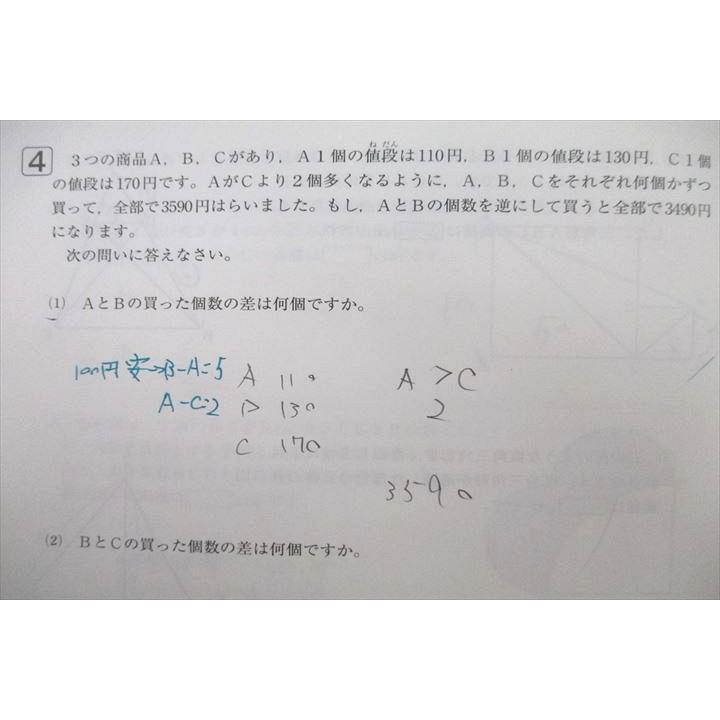 4 3つの商品A，B，Cがあり，A1個の値段は110円，B1個の値段は130円，C1個
ねだん
の値段は170円です。AがCより2個多くなるように，A，B，Cをそれぞれ何個かずつ
買って，全部で3590円はらいました。もし，AとBの個数を逆にして買うと全部で3490円
になります。
次の問いに答えなさい。
(1) AとBの買った個数の差は何個ですか。
100円安→B-A=5
A-C=2
A 110
B 130
C 170
A > C
2
3590
(2) BとCの買った個数の差は何個ですか。